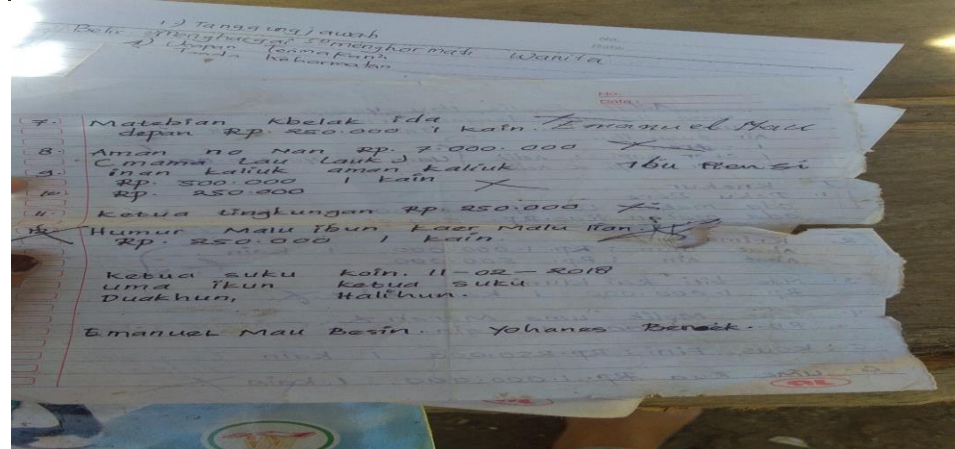 1) Tanggung jawab
Belis menghargai & menghormati Wanita
2) Ucapan terimakasih
Tanda kehormatan
No.
Date
No.
Date:
7. Matebian Kbelak ida
depan Rp 250.000 1 kain. Emanuel Mau
8. Aman no Nan Rp. 7.000.000
(mama Lau Lauk)
9. inan kaliuk aman kaliuk Ibu Hensi
Rp. 500.000 1 kain
10. Rp. 250.000
11. Ketua lingkungan Rp. 250.000
12. Humur Malu ibun kaer Malu lian.
Rp. 250.000 1 kain.
Ketua suku Koin. 11-02-2018
uma ikun ketua suku
Duakhun, Halihun.
Emanuel Mau Besin. Yohanes